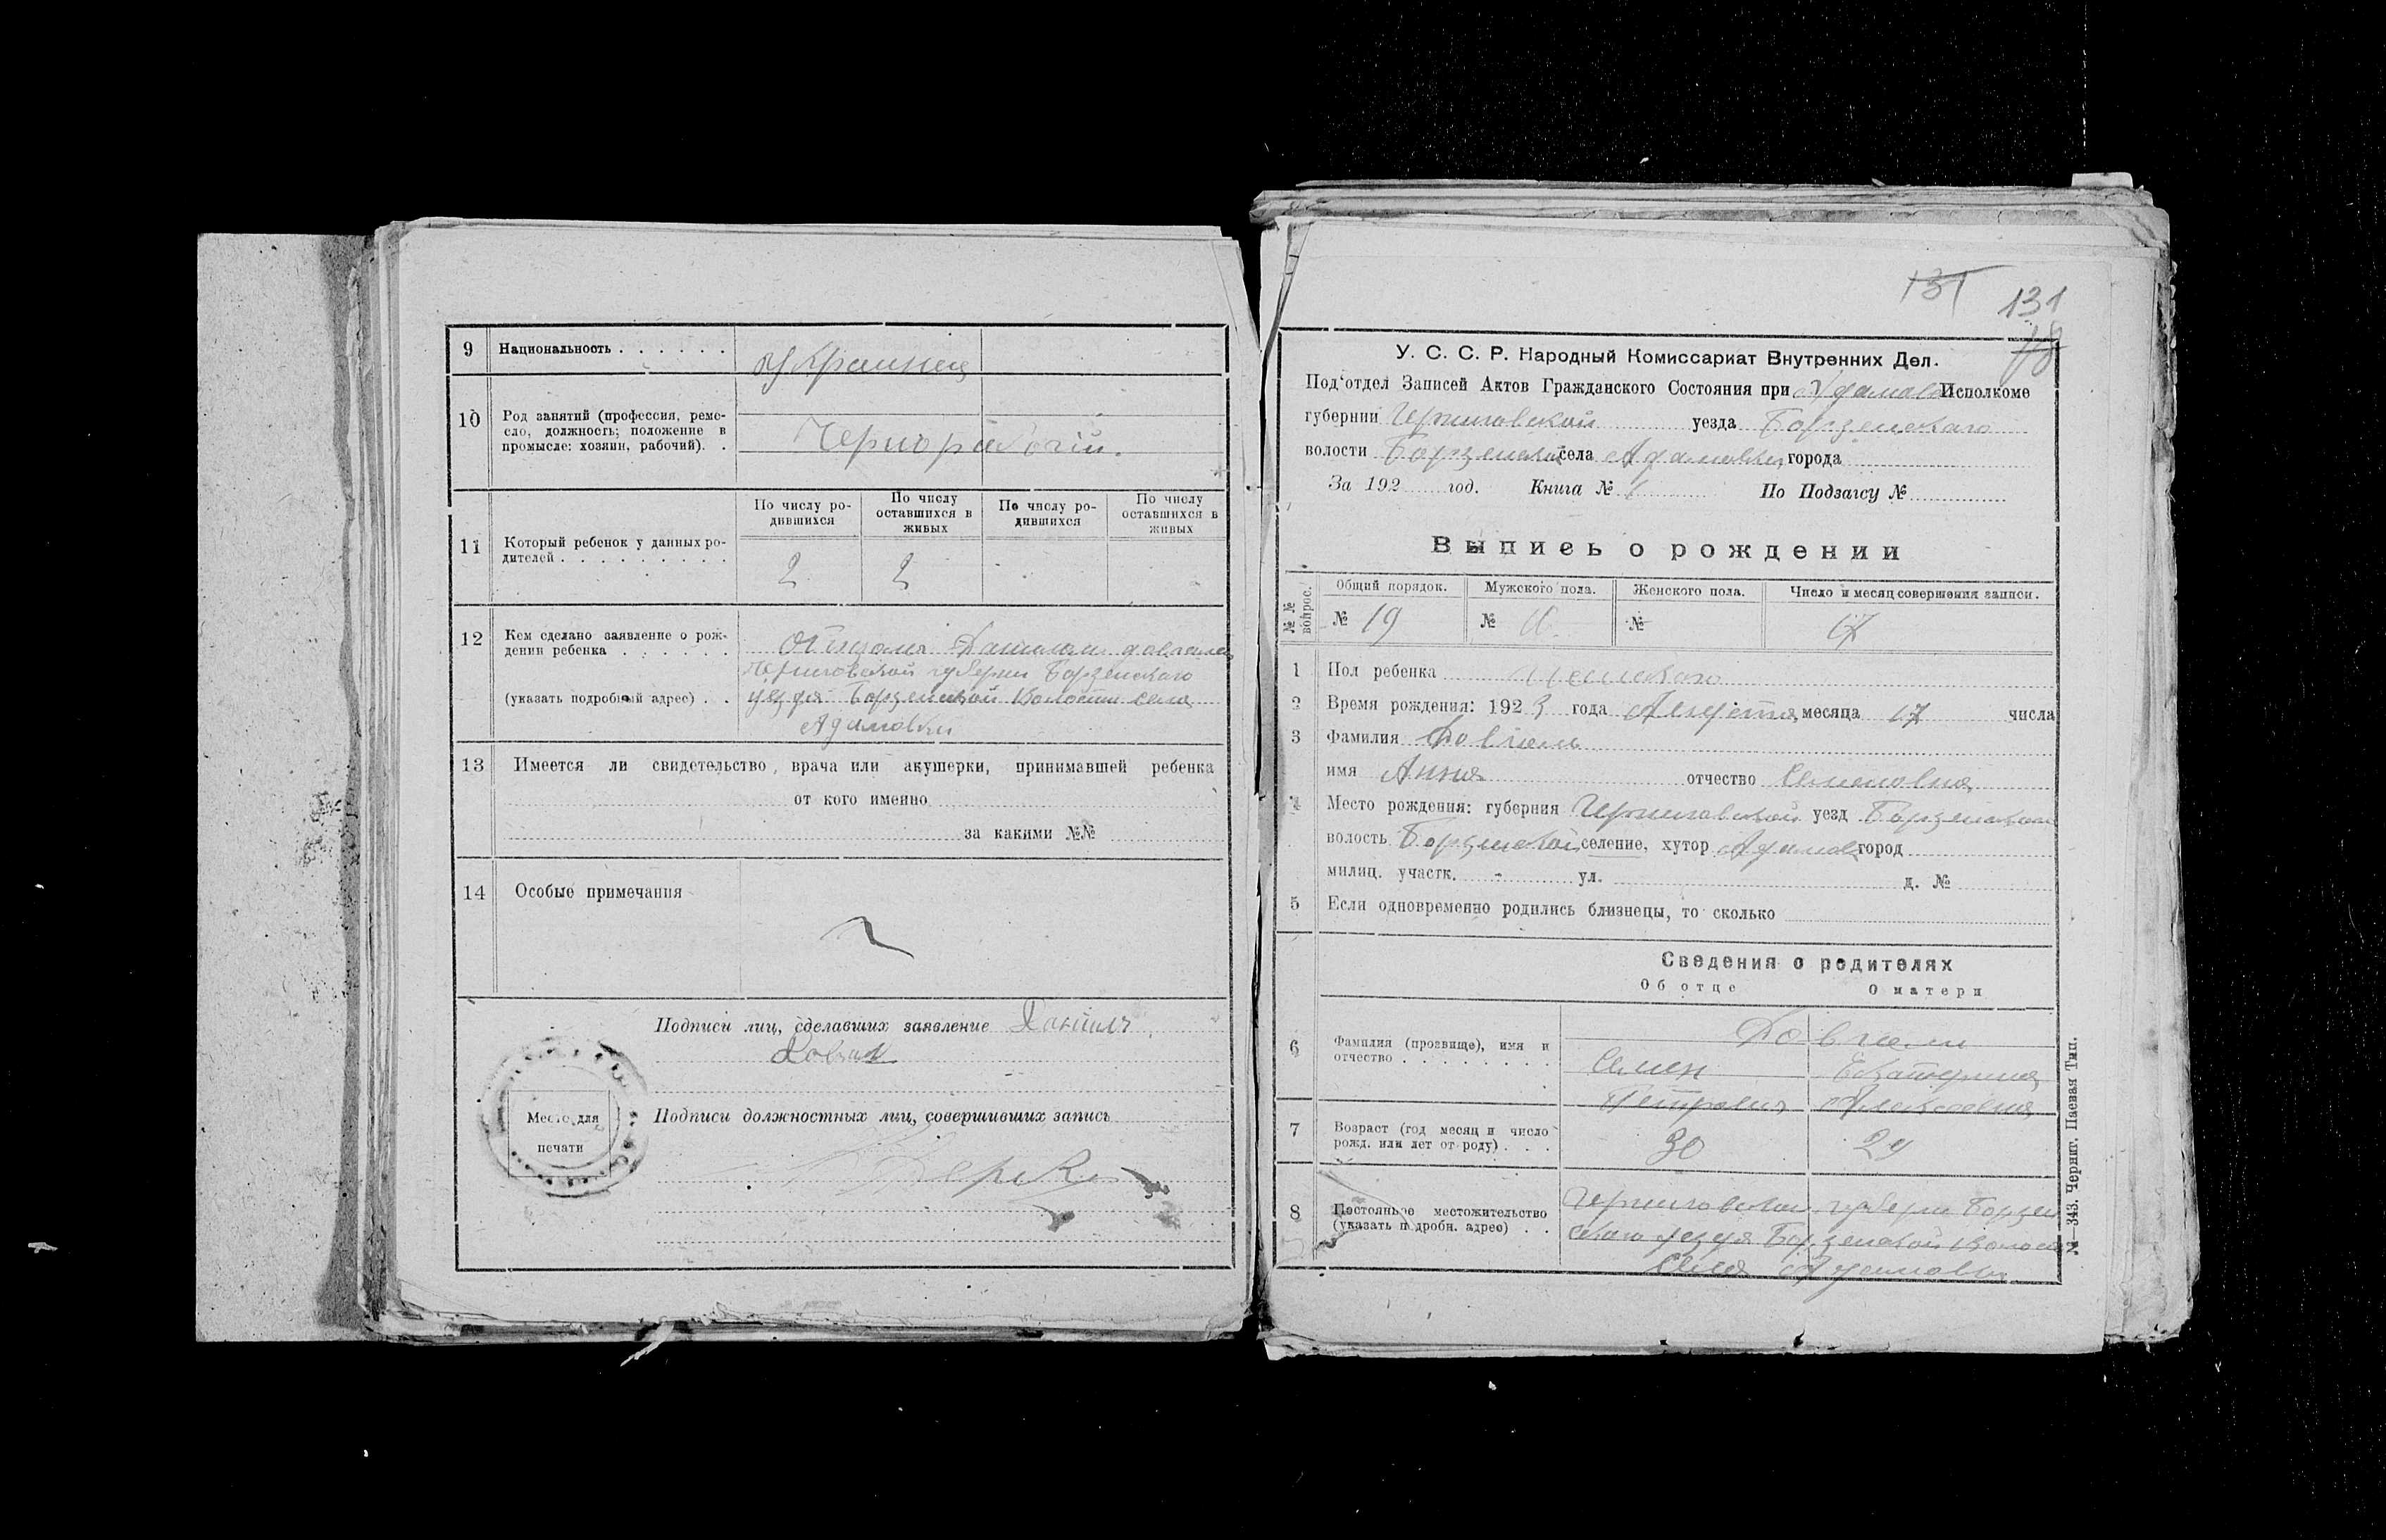 9 Национальность . . . . . . Украинец
10 Род занятий (профессия, реме-
сло, должность; положение в
промысле: хозяин, рабочий). .
Чернорабочій.
11 Который ребенок у данных ро-
дителей . . . . . . . . .
По числу ро-
дившихся
По числу
оставшихся в
живых
По числу ро-
дившихся
По числу
оставшихся в
живых
2 2
12 Кем сделано заявление о рож-
дении ребенка . . . . . .
(указать подробный адрес) . .
Черниговской губернии Борзенского
уезда Борзенской волости села
Адамовки
13 Имеется ли свидетельство врача или акушерки, принимавшей ребенка
от кого именно
за какими №№
14 Особые примечания
Подписи лиц, сделавших заявление Данило
Довгал
Место для
печати
Подписи должностных лиц, совершивших запись
131 131
78
У. С. С. Р. Народный Комиссариат Внутренних Дел.
Подотдел Записей Актов Гражданского Состояния при Адамов Исполкоме
губернии Черниговской уезда Борзенского
волости Борзенской села Адамовки города
За 192 год. Книга № 1 По Подзагсу №
Выпись о рождении
№№ вопрос. Общий порядок. Мужского пола. Женского пола. Число и месяц совершения записи.
№ 19 № № 17
1 Пол ребенка
2 Время рождения: 1923 года Августа месяца 17 числа
3 Фамилия Довгаль
имя Анна отчество Семеновна
4 Место рождения: губерния Черниговской уезд Борзенском
волость Борзенской селение, хутор Адамов город
милиц. участк. - ул. д. №
5 Если одновременно родились близнецы, то сколько
Сведения о родителях
Об отце О матери
6 Фамилия (прозвище), имя и
отчество . . . . . . . .
Довгали
Семен Екатерина
Петрович Алексеевна
7 Возраст (год месяц и число
рожд. или лет от роду) . . .
30 29
8 Постоянное местожительство
(указать подробн. адрес) . .
Черниговской губерни Борзен
скаго уезда Борзенской волости
села Адамовки
№—343. Черниг. Паевая Тип.